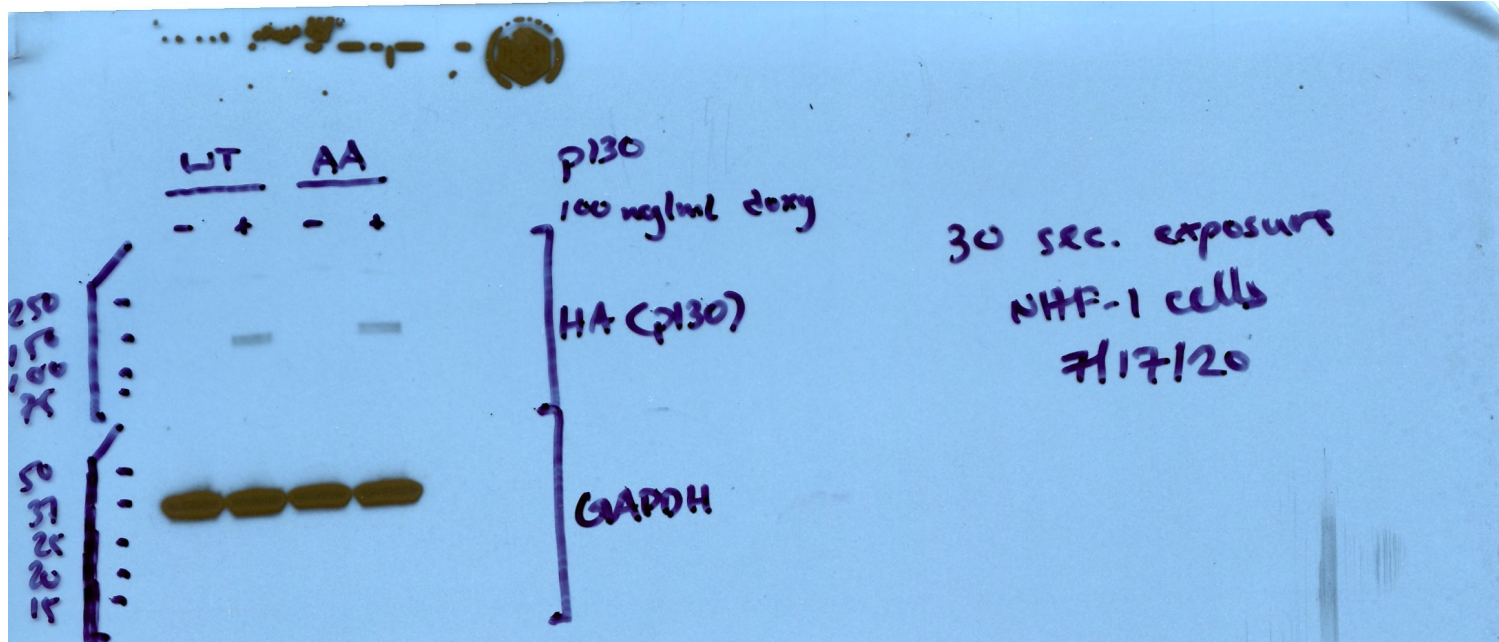 WT AA
- + - +
p130
100 ng/ml doxy
250
150
100
75
HA (p130)
50
37
25
20
15
GAPDH
30 sec. exposure
NHF-1 cells
7/17/20